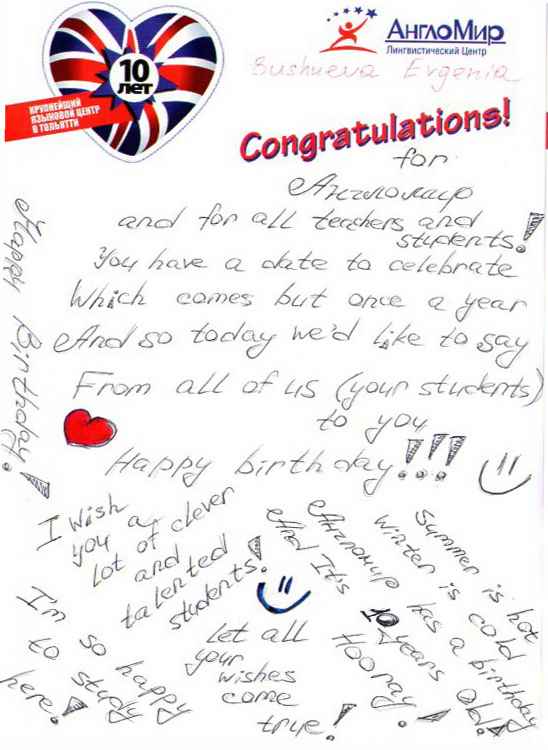 10
лет
КРУПНЕЙШИЙ
ЯЗЫКОВОЙ ЦЕНТР
В ТОЛЬЯТТИ
АнглоМир
Лингвистический Центр
Bushueva Evgenia
Congratulations!
for
Англомир
and for all teachers and
students!
You have a date to celebrate
Which comes but once a year
And so today we'd like to say
From all of us (your students)
to you
Happy birthday!!!
Happy Birthday!
I wish
you a
lot of clever
and
talented
students!
I'm so happy
to study
here!
Let all
your
wishes
come
true!
Summer is hot
Winter is cold
Англомир has a birthday
And It's 10 years old!
Hooray!